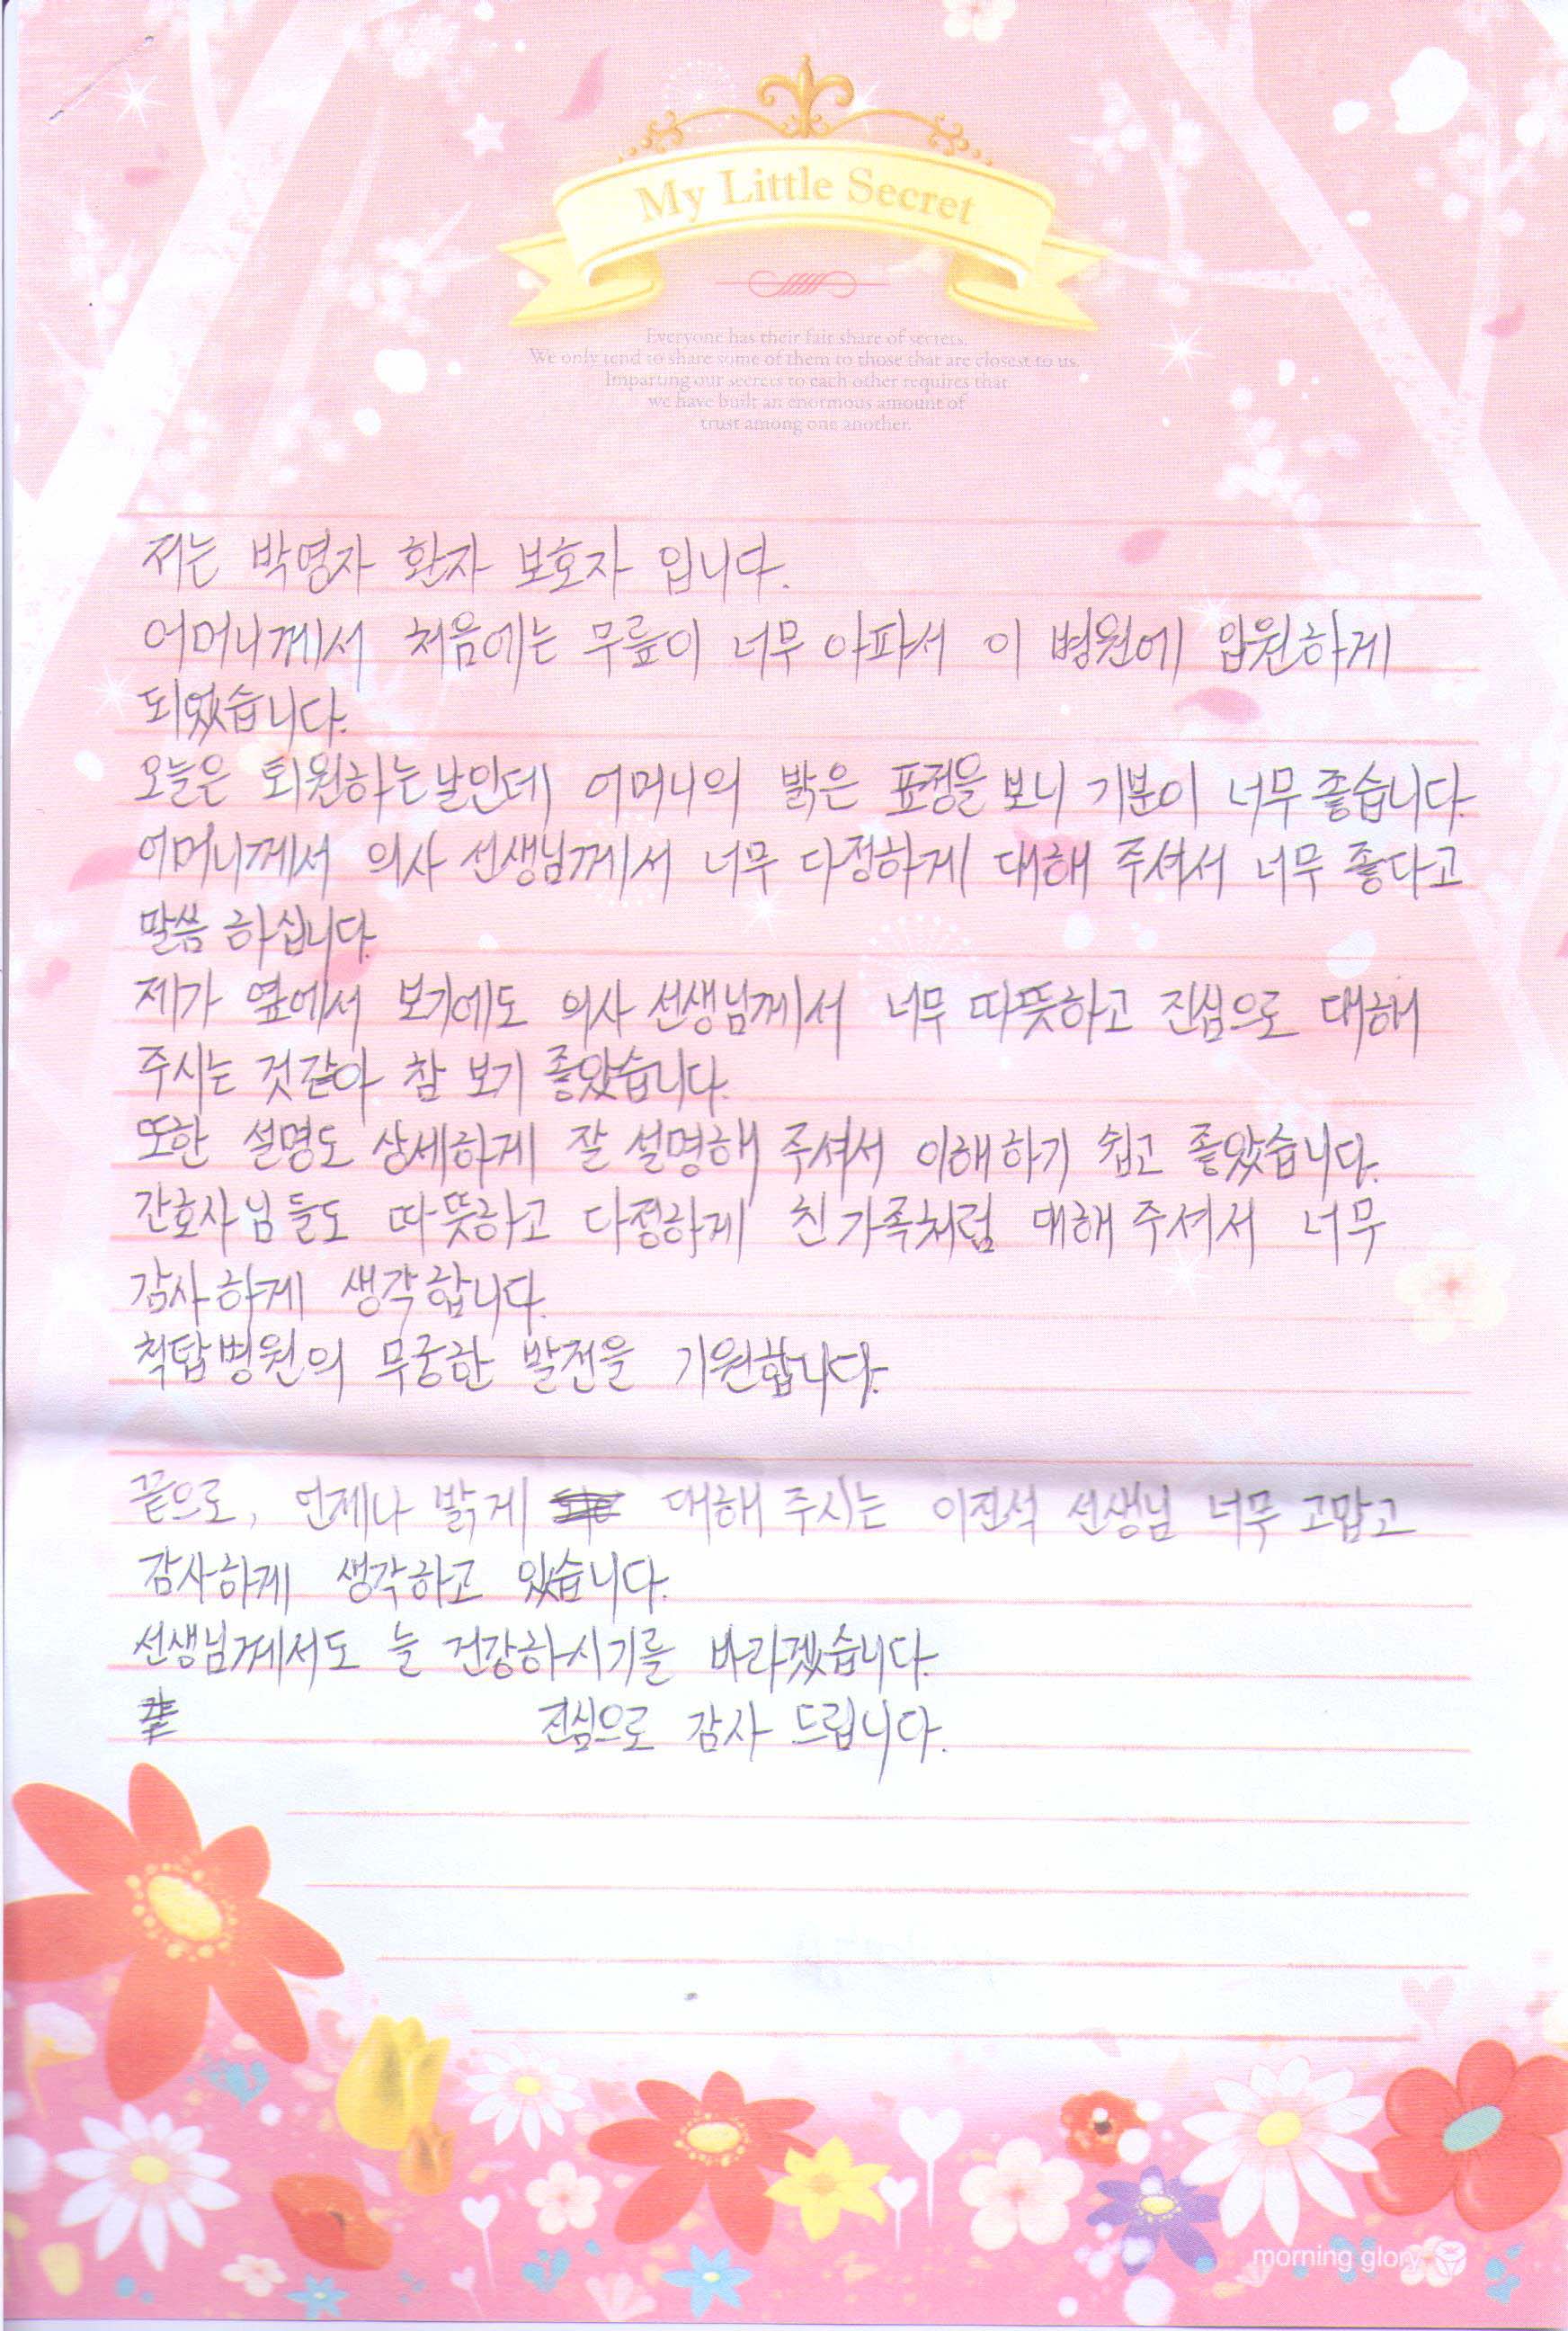 My Little Secret
Everyone has their fair share of secrets.
We only tend to share some of them to those that are closest to us.
Imparting our secrets to each other requires that
we have built an enormous amount of
trust among one another.
저는 박영자 환자 보호자 입니다.
어머니께서 처음에는 무릎이 너무 아파서 이 병원에 입원하게
되었습니다.
오늘은 퇴원하는날인데 어머니의 밝은 표정을 보니 기분이 너무 좋습니다.
어머니께서 의사 선생님께서 너무 다정하게 대해 주셔서 너무 좋다고
말씀 하십니다.
제가 옆에서 보기에도 의사 선생님께서 너무 따뜻하고 진심으로 대해
주시는 것같아 참 보기 좋았습니다.
또한 설명도 상세하게 잘 설명해 주셔서 이해하기 쉽고 좋았습니다.
간호사님들도 따뜻하고 다정하게 친가족처럼 대해 주셔서 너무
감사하게 생각합니다.
척탑병원의 무궁한 발전을 기원합니다.
끝으로, 언제나 밝게 대해 주시는 이진석 선생님 너무 고맙고
감사하게 생각하고 있습니다.
선생님께서도 늘 건강하시기를 바라겠습니다.
진심으로 감사 드립니다.
morning glory